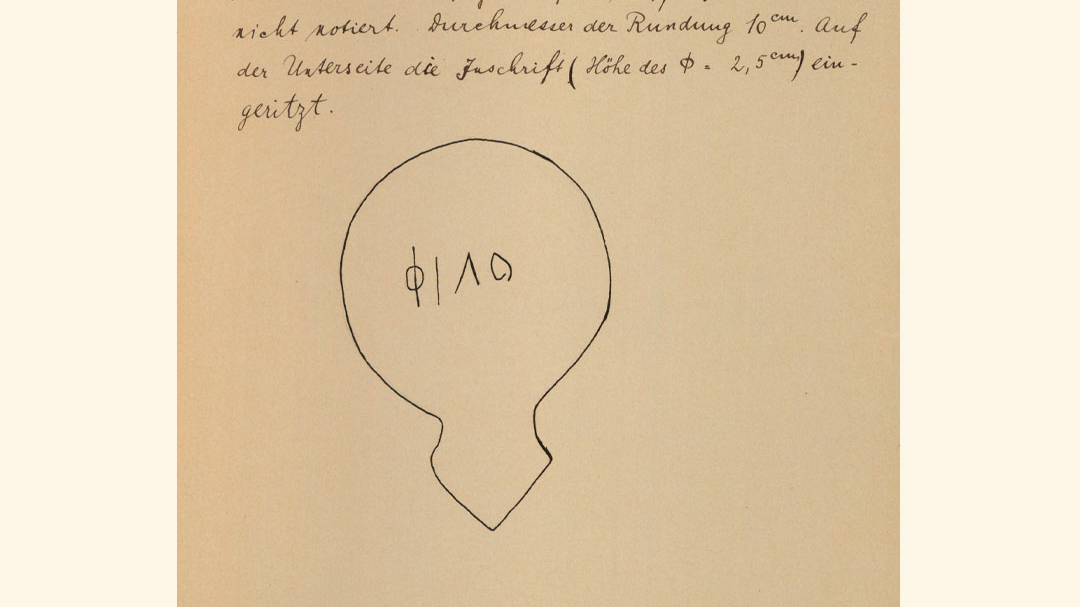 nicht notiert. Durchmesser der Rundung 10 cm. Auf
der Unterseite die Inschrift (Höhe des Φ = 2,5 cm) ein-
geritzt.
ΦΙΛΟ